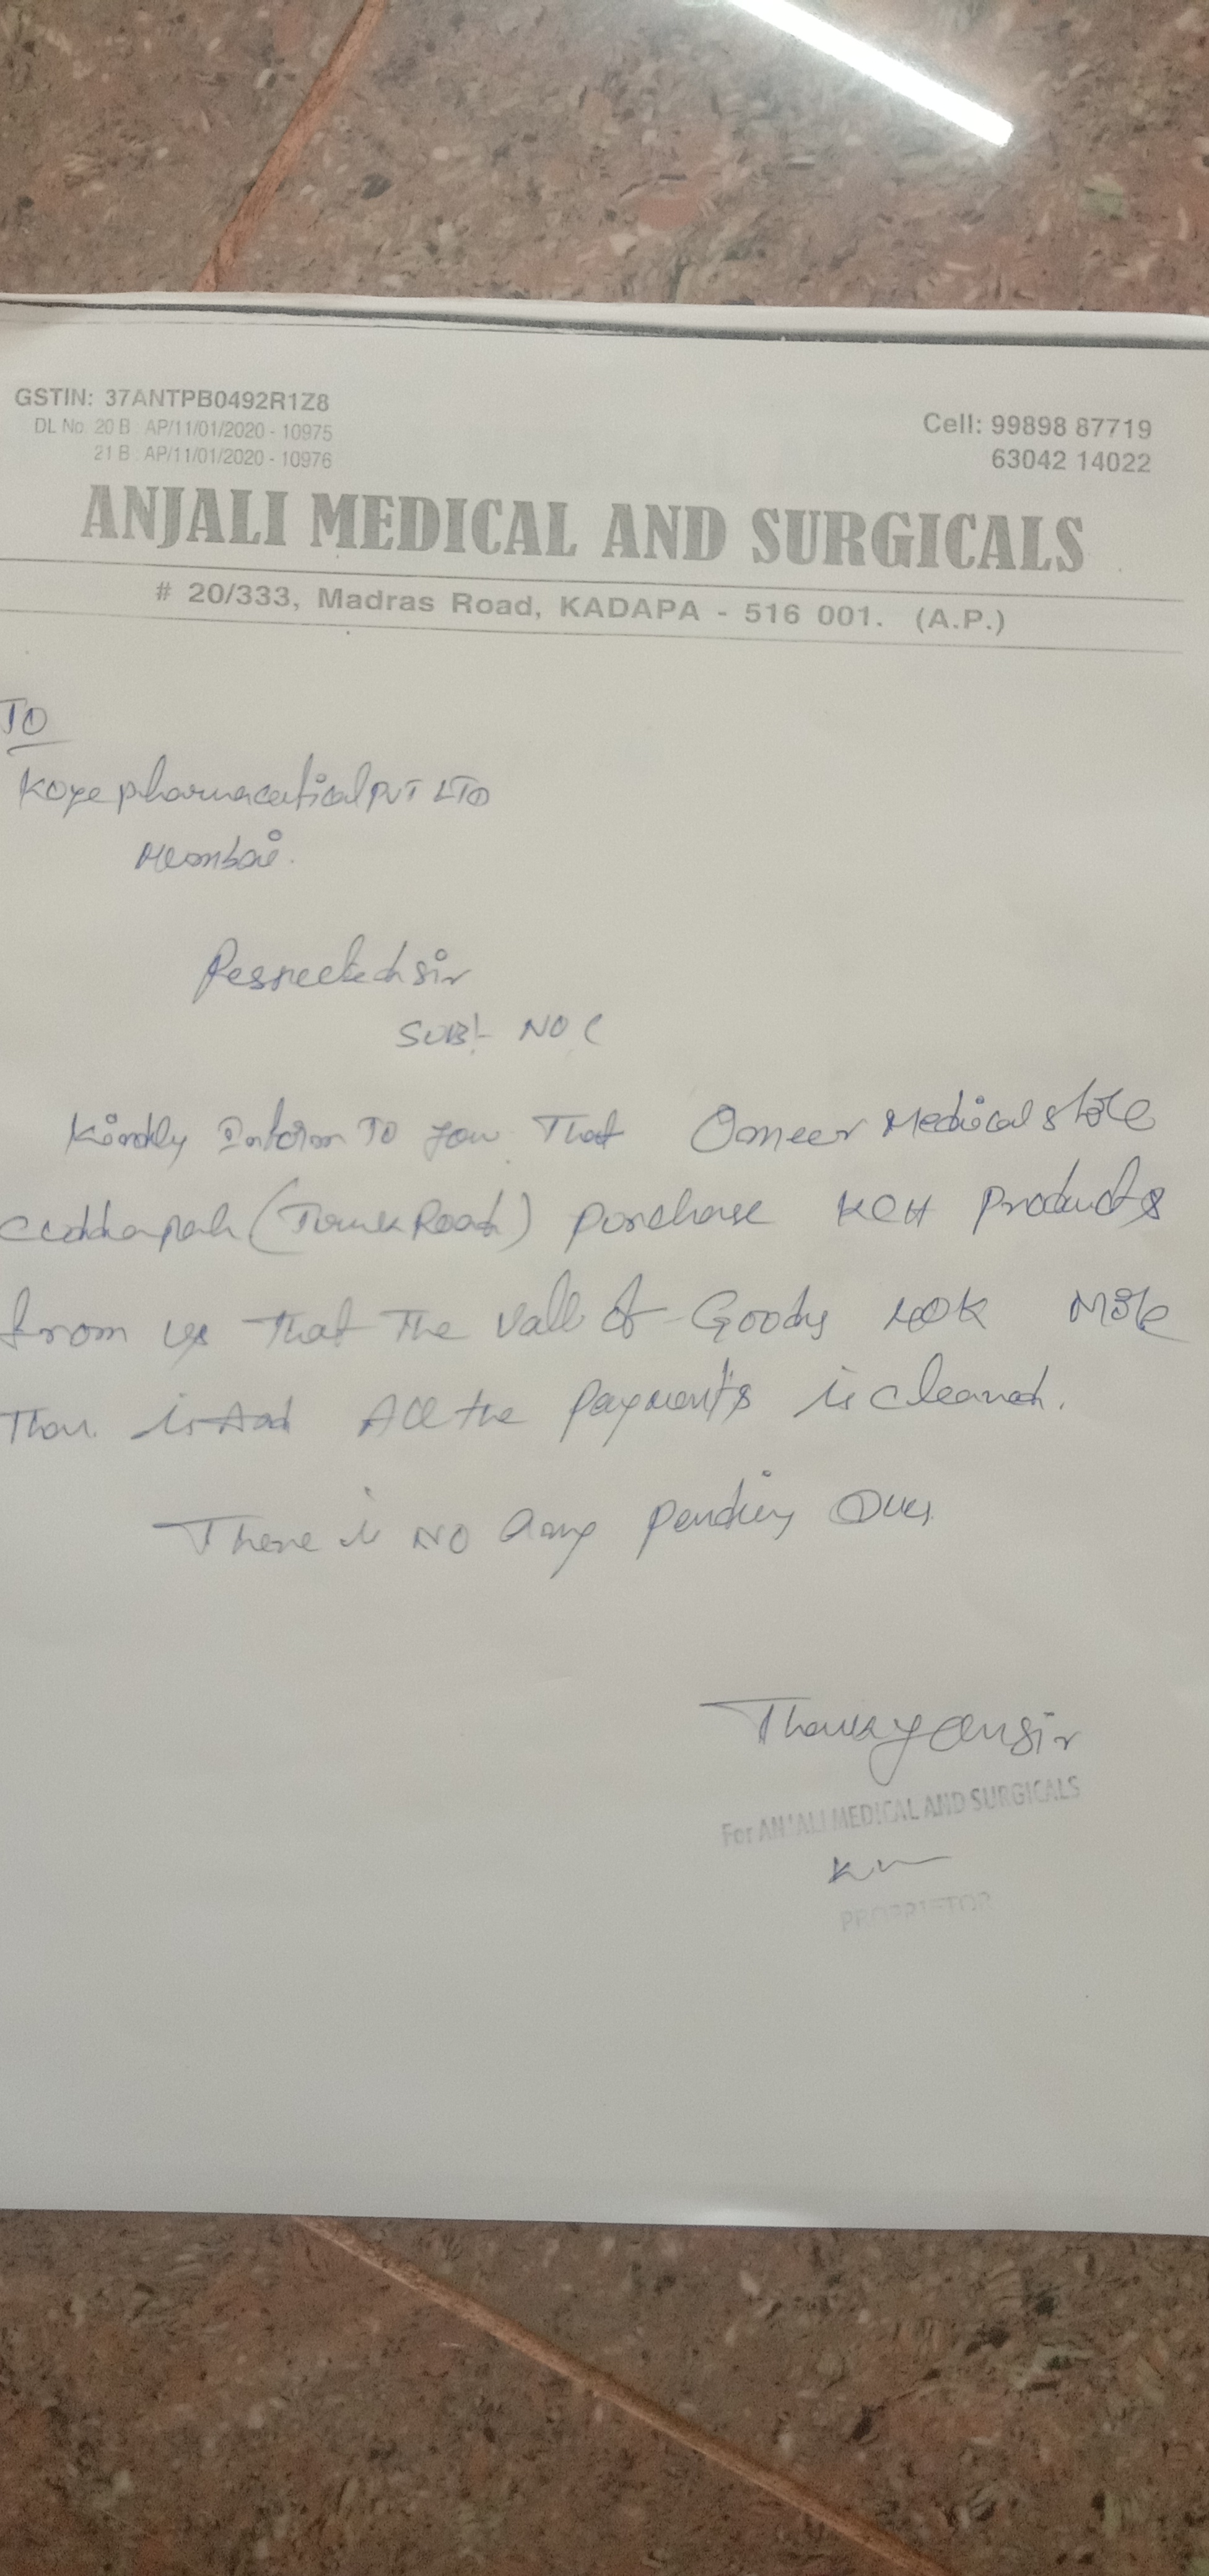 GSTIN: 37ANTPB0492R1Z8
DL No. 20 B : AP/11/01/2020 - 10975
21 B : AP/11/01/2020 - 10976
Cell: 99898 87719
63042 14022
ANJALI MEDICAL AND SURGICALS
# 20/333, Madras Road, KADAPA - 516 001. (A.P.)
TO
Koye pharmaceutical PVT LTD
Mumbai.
Respected sir
SUB:- NOC
Kindly Inform TO you That Omeer Medical store
Cuddapah (Tank Road) purchase KCH products
from us that the of Goods 40K More
Than. is And All the payments is cleared.
There is NO Any pending Dues.
Thank you sir
For ANJALI MEDICAL AND SURGICALS
PROPRIETOR